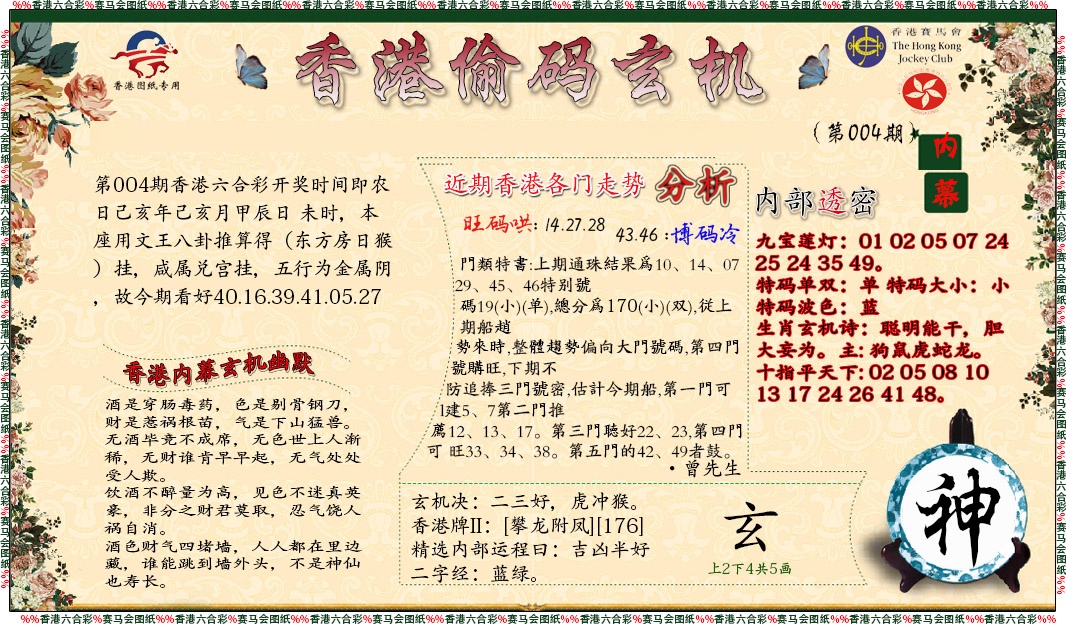 %%香港六合彩%赛马会图纸%%香港六合彩%赛马会图纸%%香港六合彩%赛马会图纸%%香港六合彩%赛马会图纸%%香港六合彩%赛马会图纸%%香港六合彩%赛马会图纸%%香港六合彩%赛马会图纸%%香港六合彩%%
香港图纸专用
香港偷码玄机
香港賽馬會
The Hong Kong
Jockey Club
(第004期)
内
幕
第004期香港六合彩开奖时间即农
日己亥年己亥月甲辰日 未时，本
座用文王八卦推算得（东方房日猴
）挂，咸属兑宫挂，五行为金属阴
，故今期看好40.16.39.41.05.27
香港内幕玄机幽默
酒是穿肠毒药，色是剔骨钢刀，
财是惹祸根苗，气是下山猛兽。
无酒毕竟不成席，无色世上人渐
稀，无财谁肯早早起，无气处处
受人欺。
饮酒不醉量为高，见色不迷真英
豪，非分之财君莫取，忍气饶人
祸自消。
酒色财气四堵墙，人人都在里边
藏，谁能跳到墙外头，不是神仙
也寿长。
近期香港各门走势 分析
旺码哄: 14.27.28
43.46 :博码冷
門類特書:上期通珠結果爲10、14、07
29、45、46特别號
碼19(小)(单),總分爲170(小)(双),従上
期船趙
勢來時,整體趨勢偏向大門號碼,第四門
號購旺,下期不
防追捧三門號密,估計今期船,第一門可
1建5、7第二門推
薦12、13、17。第三門聴好22、23,第四門
可 旺33、34、38。第五門的42、49者鼓。
·曾先生
玄机决：二三好，虎冲猴。
香港牌II：[攀龙附凤][176]
精选内部运程曰：吉凶半好
二字经：蓝绿。
玄
上2下4共5画
内部透密
九宝莲灯：01 02 05 07 24
25 24 35 49。
特码单双：单 特码大小：小
特码波色：蓝
生肖玄机诗：聪明能干，胆
大妄为。主: 狗鼠虎蛇龙。
十指平天下: 02 05 08 10
13 17 24 26 41 48。
神
%%香港六合彩%赛马会图纸%%香港六合彩%赛马会图纸%%香港六合彩%赛马会图纸%%香港六合彩%赛马会图纸%%香港六合彩%赛马会图纸%%香港六合彩%赛马会图纸%%香港六合彩%赛马会图纸%%香港六合彩%%